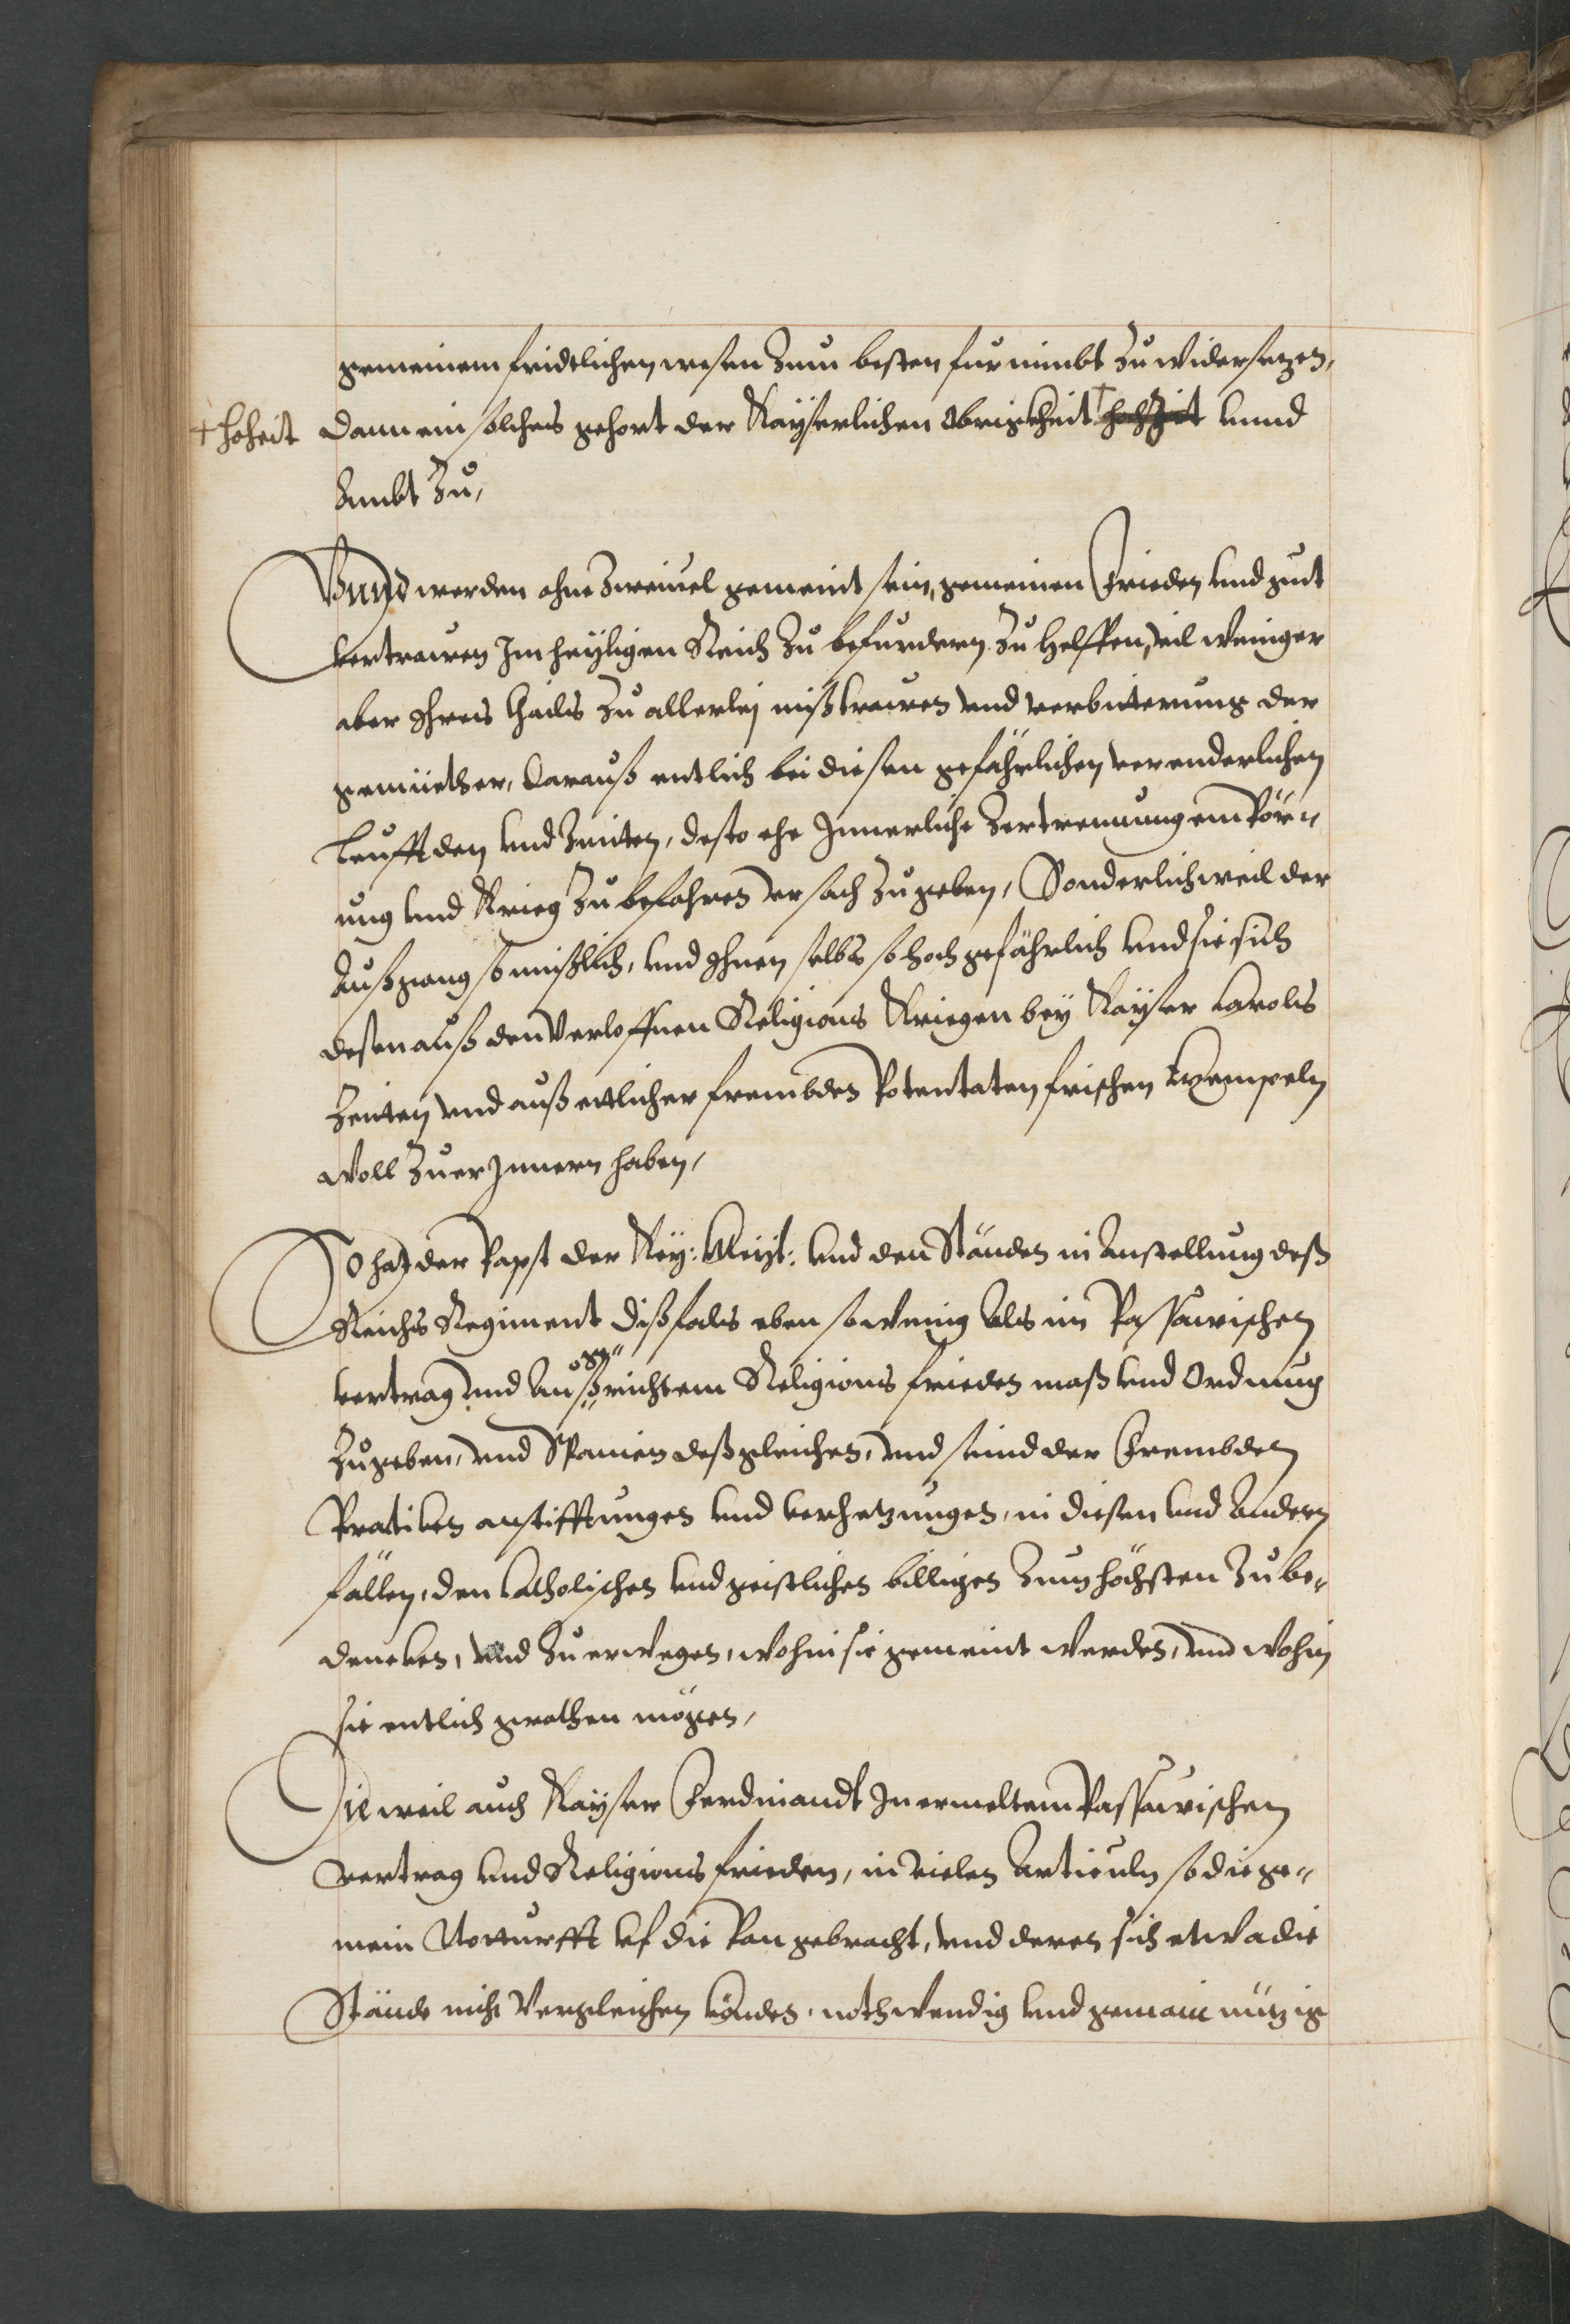 gemeinem fridtlichen wesen zum besten furnimbt zu widersetzen,
+ hoheit dann ein solches gehort der Kayserlichen Obrigkheit + hochzeit unnd
Ambt zu,
Vnnd werden ohne zweiuel gemeint sein, gemeinen Frieden vnd gut
vertrawen Im heyligen Reich zu befurdern zu helffen, vil weniger
aber Ihres thails zu allerlej mißtrawen vnd verbitterung der
gemüether, darauß entlich bei diesen gefährlichen verenderlichen
leufften vnd Zeiten, desto ehe Innerliche Zertrennung empör¬
ung vnd Krieg zu befahren vrsach zugeben, Sonderlich weil der
Außgang so mißlich, vnd Ihnen selbs so hoch gefährlich vnd sie sich
deßen auß den verloffnen Religions Kriegen bey Kayser Carols
Zeiten vnd auß ettlicher frembden Potentaten frischen Exempeln
woll zu erInnern haben,
So hat der Papst der Key: Meyt: vnd den Ständen in Anstellung deß
Reichs Regiment dißfals eben so wenig als im Passawischen
vertrag vnd Außgerichtem Religions frieden maß vnd Ordnung
zugeben, vnd Spanien deßgleichen, vnd seind der Frembden
Pratiken anstifftungen vnd verhetzungen, in diesen vnd Andern
fällen, den Catholischen vnd geistlichen billigen zum höchsten zu be¬
dencken, vnd zu erwegen, wohin sie gemeint werden, vnd wohin
sie entlich gerathen mögen,
Dieweil auch Kayser Ferdinandt In ermeltem Passawischen
vertrag vnd Religions frieden, in vielen Articuln so die ge¬
mein Notturfft vf die Ban gebracht, vnd deren sich etwa die
Stände nicht Vergleichen könden, nothwendig vnd gemain nützig